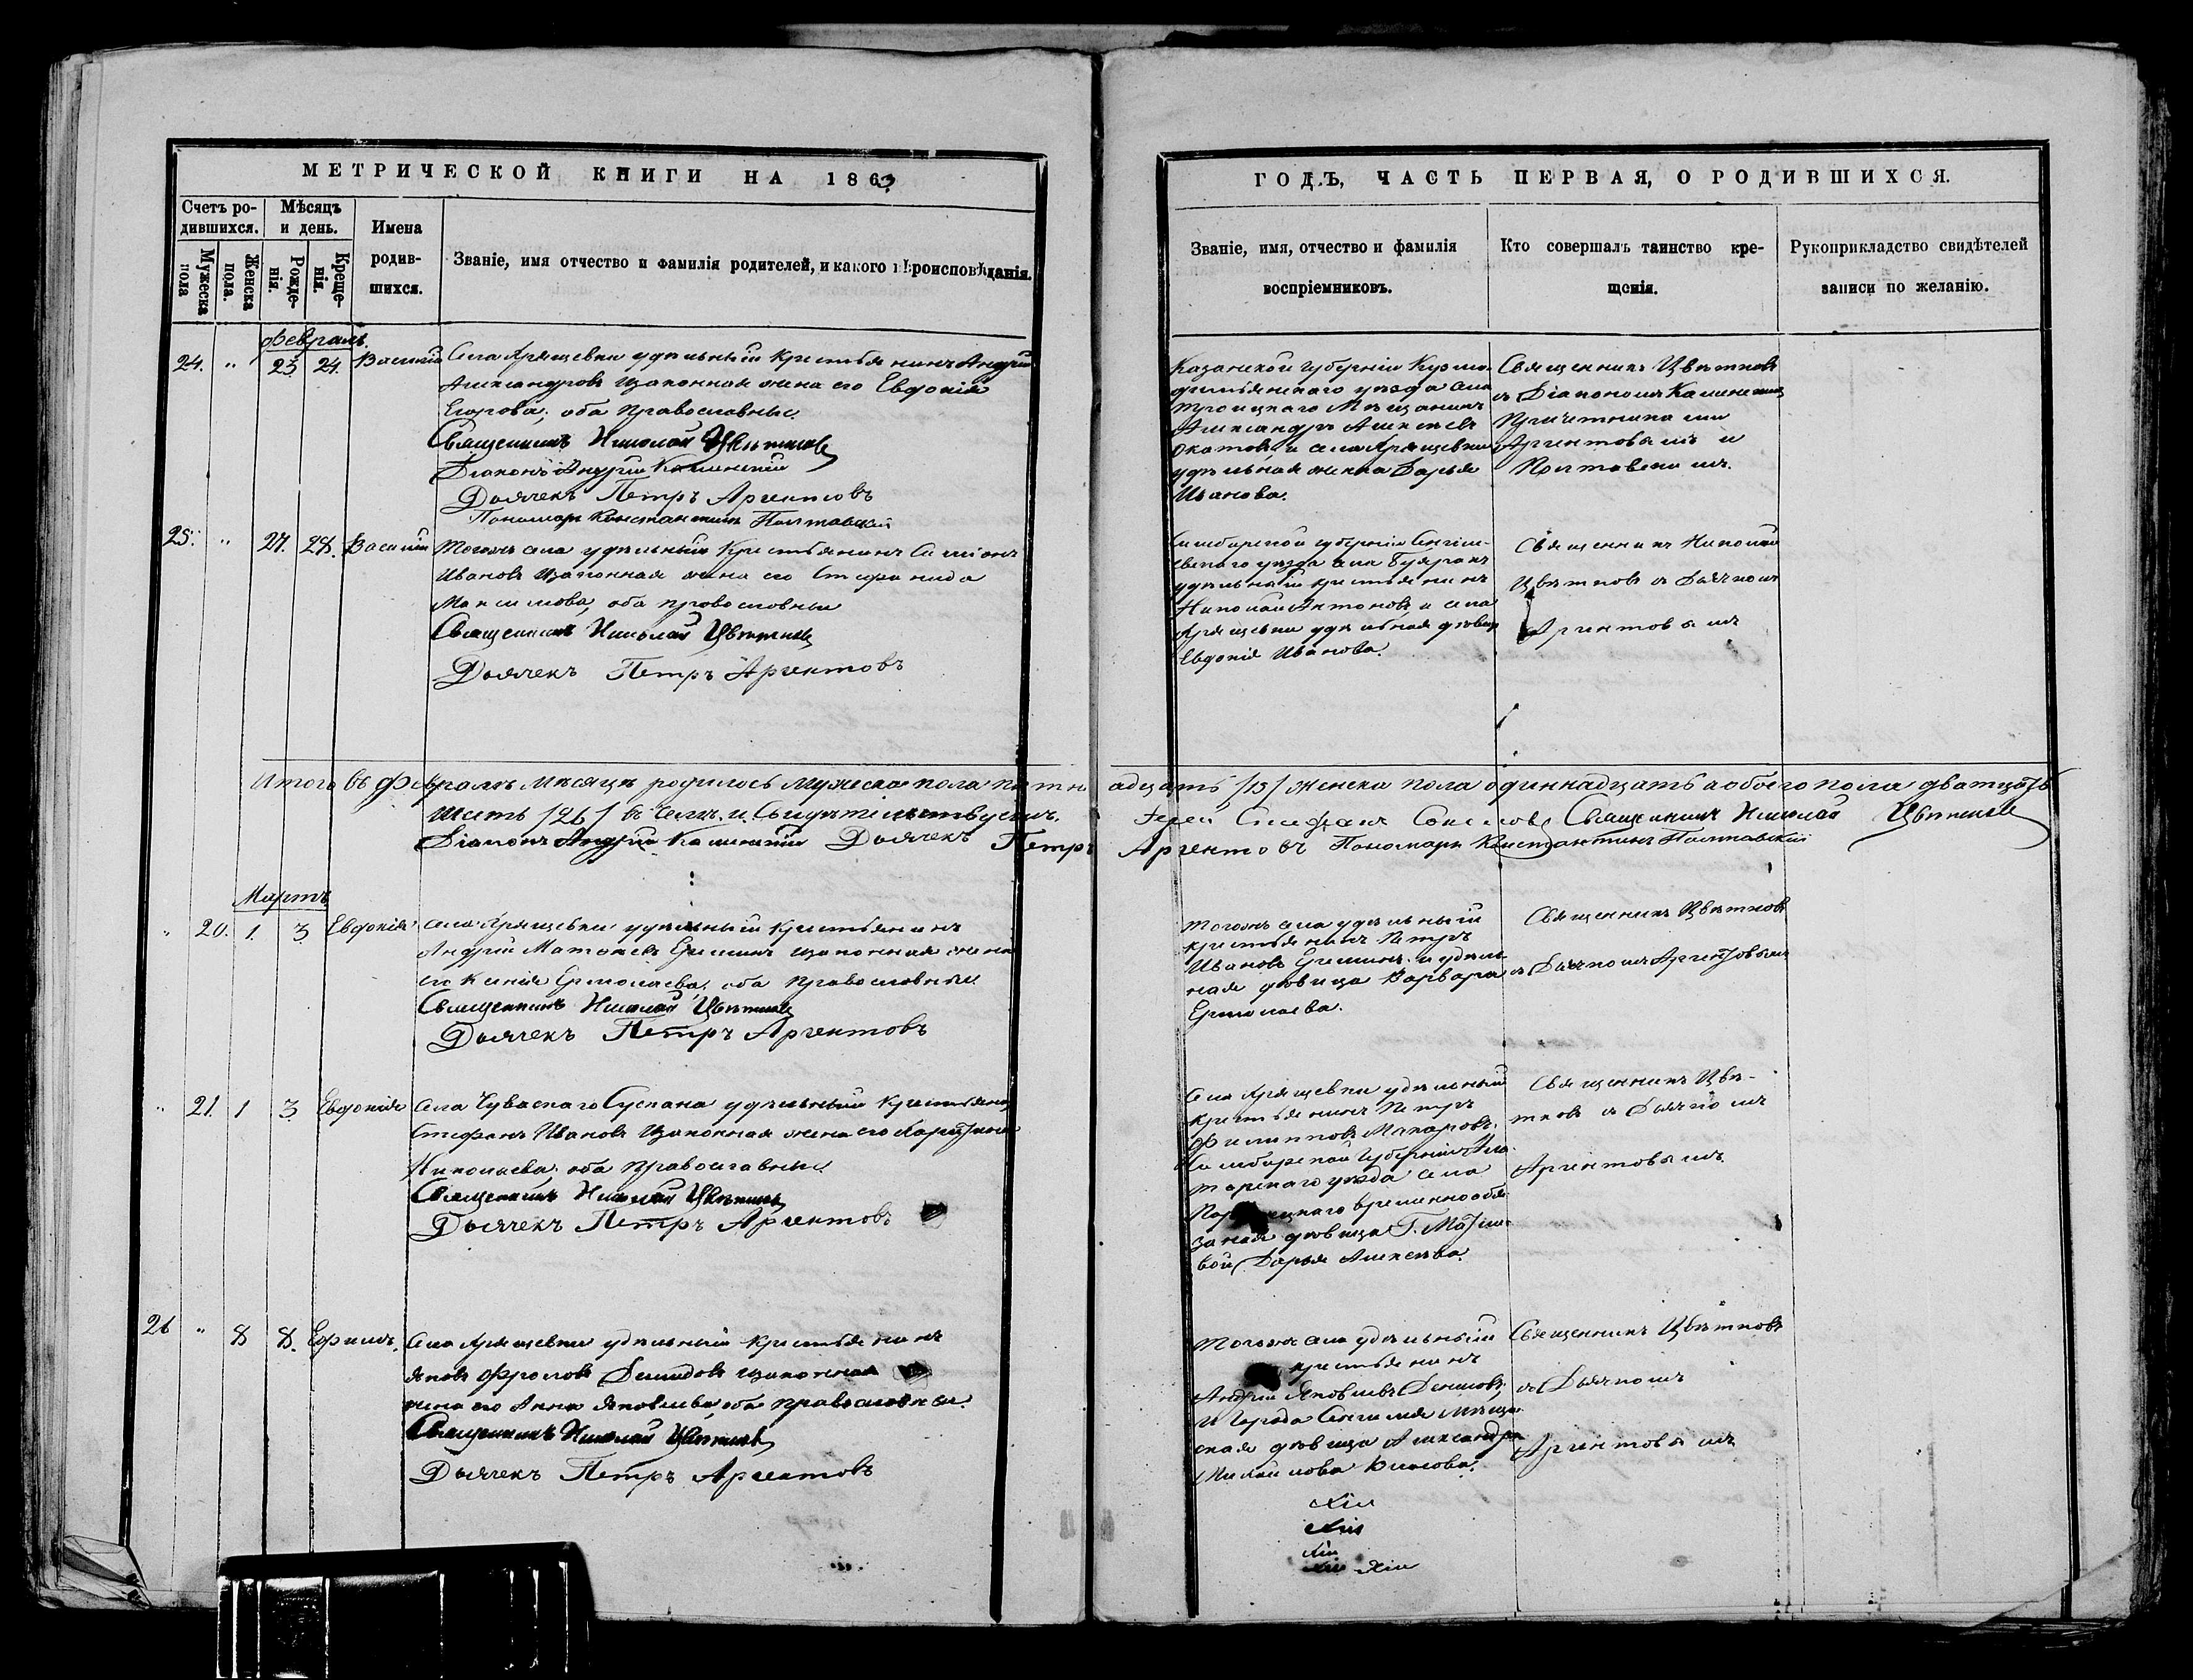 МЕТРИЧЕСКОЙ КНИГИ НА 1863
Счетъ ро-
дившихся.
Мѣсяцъ
и день.
Мужеска
пола
Женска
пола.
Рожде-
нія.
Креще-
нія.
Имена
родив-
шихся.
Званіе, имя отчество и фамилія родителей, и какого вѣроисповѣданія.
Февраль.
24. " 23. 24. Василій
Села Хрящевки удѣльный крестьянинъ Андрей
Александровъ и законная жена его Евдокія
Егорова, оба православные
Священникъ Николай Цвѣтковъ
Діаконъ Андрей Каменскій
Дьячекъ Петръ Аргентовъ
Пономарь Константинъ Полтавскій
25. " 27. 28. Василій
Тогожъ села удѣльный крестьянинъ Симіонъ
Ивановъ и законная жена его Стефанида
Максимова, оба православные
Священникъ Николай Цвѣтковъ
Дьячекъ Петръ Аргентовъ
Итого въ Февралѣ мѣсяцѣ родилось мужеска пола пятн
шесть /26/ въ чемъ и свидѣтельствуемъ.
Діаконъ Андрей Каменскій Дьячекъ Петръ
Мартъ
" 20. 1. 3. Евдокія
Села Хрящевки удѣльный крестьянинъ
Андрей Матвеевъ и законная жена
его Ксенія Ермолаева, оба православные
Священникъ Николай Цвѣтковъ
Дьячекъ Петръ Аргентовъ
" 21. 1 3 Евдокія
Села Чуваскаго Сускана удѣльный крестьянинъ
Стефанъ Ивановъ и законная жена его
Николаева, оба православные
Священникъ Николай Цвѣтковъ
Дьячекъ Петръ Аргентовъ
26 " 8 8. Ефимъ.
Села Хрящевки удѣльный крестьянинъ
Яковъ Фроловъ и законная
жена его Анна Яковлева, оба православные.
Священникъ Николай Цвѣтковъ
Дьячекъ Петръ Аргентовъ
ГОДЪ, ЧАСТЬ ПЕРВАЯ, О РОДИВШИХСЯ.
Званіе, имя, отчество и фамилія
воспріемниковъ.
Кто совершалъ таинство кре-
щенія.
Рукоприкладство свидѣтелей
записи по желанію.
Казанской губерніи Кузмо-
демьянскаго уѣзда села
Троицкаго Мѣщанинъ
Александръ Алексѣевъ
и села Хрящевки
удѣльная женка Дарья
Иванова.
Священникъ Цвѣтковъ
съ Діакономъ Каменскимъ
Причетниками
Аргентовымъ и
Полтавскимъ.
Симбирской губерніи Сенгиле-
евскаго уѣзда села Буяракъ
удѣльный крестьянинъ
Николай Антоновъ и села
Хрящевки удѣльная дѣвица
Евдокія Иванова.
Священникъ Николай
Цвѣтковъ съ Дьячкомъ
Аргентовымъ
адцать /15/ женска пола одиннадцать а обоего пола двадцать
Іерей Стефанъ Священникъ Николай Цвѣтковъ
Аргентовъ Пономарь Константинъ Полтавскій
Тогожъ села удѣльный
крестьянинъ Петръ
Ивановъ и удѣль-
ная дѣвица Варвара
Ермолаева.
Священникъ Цвѣтковъ
съ Дьячкомъ Аргентовымъ
Села Хрящевки удѣльный
крестьянинъ Петръ
Филипповъ Макаровъ.
Симбирской Губерніи Ала-
торскаго уѣзда села
временнообя-
занная дѣвица Г.
Дарья Алексѣева.
Священникъ Цвѣ-
тковъ съ Дьячкомъ
Аргентовымъ
Тогожъ села удѣльный
крестьянинъ
Андрей Яковлевъ
и города Сенгилея мѣщан-
ская дѣвица Александра
Михайлова
Священникъ Цвѣтковъ
съ Дьячкомъ
Аргентовымъ